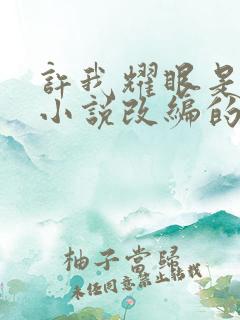 許我耀眼是
小說改編的
柚子當歸
未经同意禁止转载